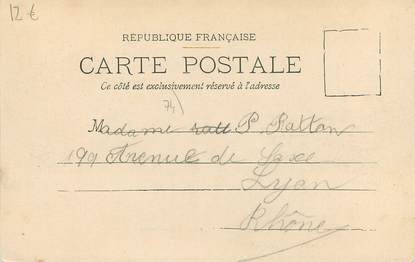 12 €
RÉPUBLIQUE FRANÇAISE
CARTE POSTALE
Ce côté est exclusivement réservé à l'adresse
74
Madame P. Ratton
199 Avenue de Saxe
Lyon
Rhône